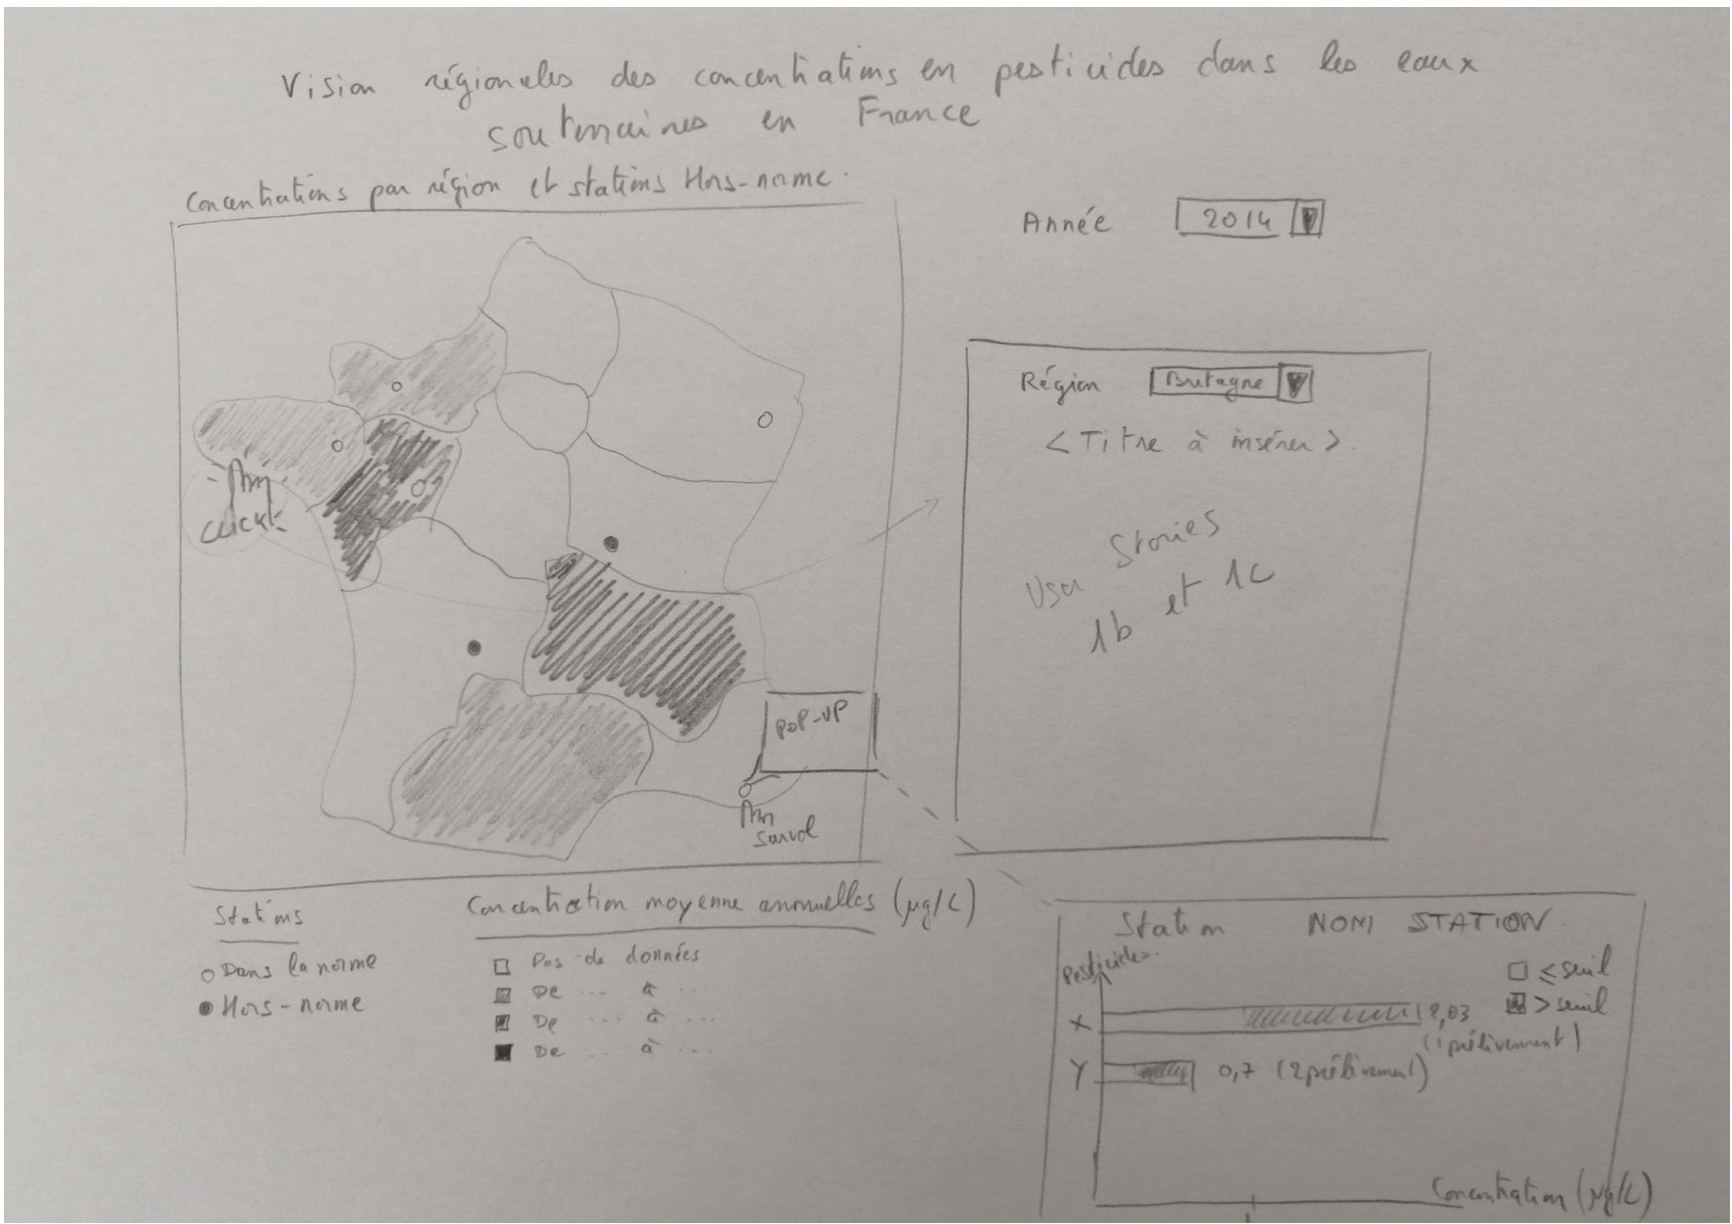 Vision régionales des concentrations en pesticides dans les eaux
souterraines en France
Concentrations par région et stations Hors-norme.
Année 2014
Région Bretagne
<Titre à insérer>
User Stories
1b et 1c
click
POP-UP
survol
Stations
Dans la norme
Hors-norme
Concentration moyenne annuelles (µg/L)
Pas de données
De ... à ...
De ... à ...
De ... à ...
Station NOM STATION
Pesticides
≤ seuil
> seuil
X
(1 prélèvement)
Y 0,7 (2 prélèvement)
Concentration (µg/L)